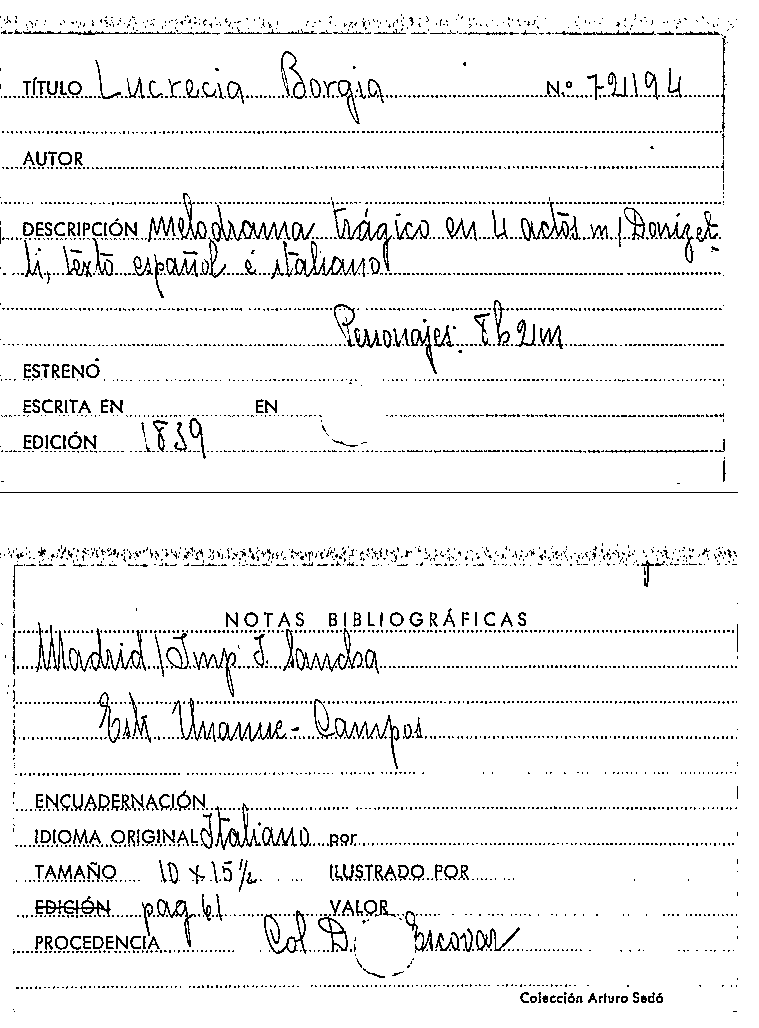 TÍTULO Lucrecia Borgia N.º 72194
AUTOR
DESCRIPCIÓN Melodrama trágico en 4 actos m/ Donizet-
ti, texto español é italiano
Personajes: 8h 2m
ESTRENÓ
ESCRITA EN EN
EDICIÓN 1839
NOTAS BIBLIOGRÁFICAS
Madrid / Imp I. Sancha
Estr Unanue - Campos
ENCUADERNACIÓN
IDIOMA ORIGINAL Italiano por
TAMAÑO 10 x 15 ½ ILUSTRADO POR
EDICIÓN pag 61 VALOR
PROCEDENCIA Col D. Escovar
Colección Arturo Sedó